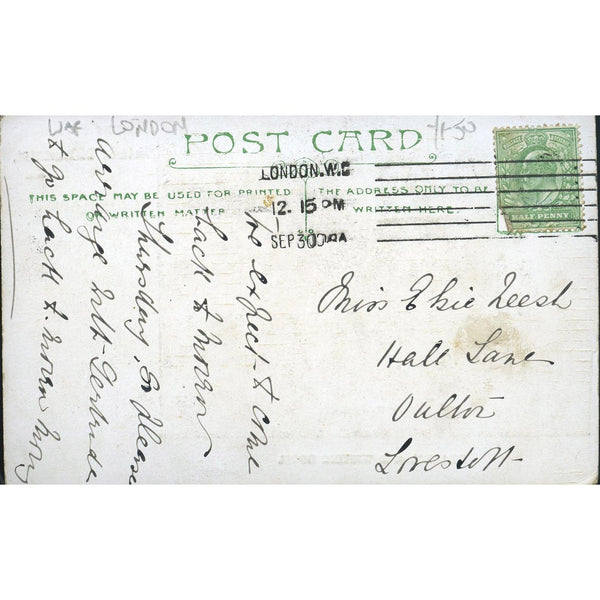 UK LONDON
1-50
POST CARD
THIS SPACE MAY BE USED FOR PRINTED
OR WRITTEN MATTER
THE ADDRESS ONLY TO BE
WRITTEN HERE.
LONDON. W.C
12. 15 PM
SEP 30
HALF PENNY
We expect to come
back to
Thursday, so please
arrange with Gertrude
& go back to
Miss Elsie
Hall Lane
Oulton
Lowestoft